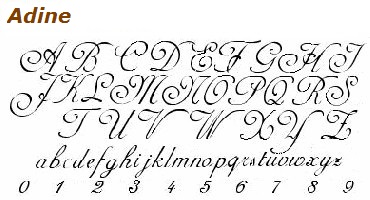 Adine
A B C D E F G H I
J K L M N O P Q R S
T U V W X Y Z
abcdefghijklmnopqrstuvwxyz
0 1 2 3 4 5 6 7 8 9